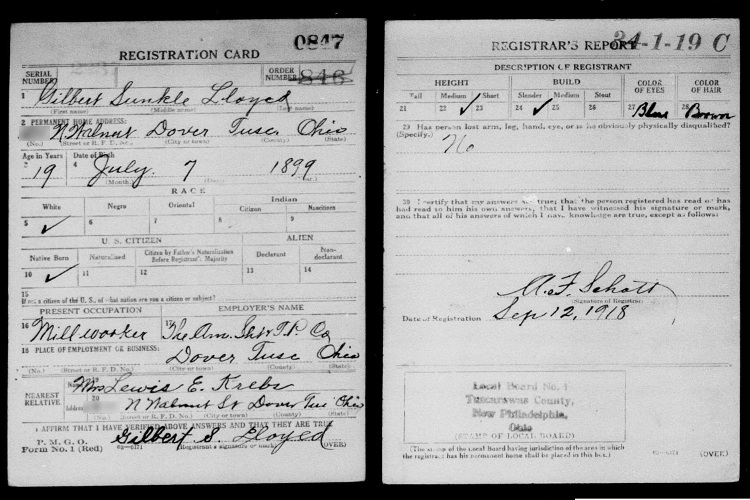 REGISTRATION CARD 0847
SERIAL NUMBER ORDER NUMBER 846
1 Gilbert Sunkle Lloyed
(First name) (Middle name) (Last name)
2 PERMANENT HOME ADDRESS:
N Walnut Dover Tusc. Ohio
(No.) (Street or R. F. D. No.) (City or town) (County) (State)
Age in Years Date of Birth
3 19 4 July. 7 1899
(Month.) (Day.) (Year.)
RACE
White Negro Oriental Indian
Citizen Noncitizen
5 ✓ 6 7 8 9
U. S. CITIZEN ALIEN
Native Born Naturalized Citizen by Father's Naturalization Before Registrant's Majority Declarant Non-declarant
10 ✓ 11 12 13 14
15
If not a citizen of the U. S., of what nation are you a citizen or subject?
PRESENT OCCUPATION EMPLOYER'S NAME
16 Millworker 17 The Am. Sht & T.P. Co
18 PLACE OF EMPLOYMENT OR BUSINESS:
Dover Tusc Ohio
(No.) (Street or R. F. D. No.) (City or town) (County) (State)
NEAREST RELATIVE Name 19 Mrs Lewis E. Krebs
Address 20 N Walnut St Dover Tus Ohio
(No.) (Street or R. F. D. No.) (City or town) (County) (State)
I AFFIRM THAT I HAVE VERIFIED ABOVE ANSWERS AND THAT THEY ARE TRUE
P. M. G. O.
Form No. 1 (Red) Gilbert S. Lloyed
(Registrant's signature or mark) (OVER)
REGISTRAR'S REPORT 34-1-19 C
DESCRIPTION OF REGISTRANT
HEIGHT BUILD COLOR OF EYES COLOR OF HAIR
Tall Medium Short Slender Medium Stout
21 22 ✓ 23 24 ✓ 25 26 27 Blue 28 Brown
29 Has person lost arm, leg, hand, eye, or is he obviously physically disqualified?
(Specify.) No
30 I certify that my answers are true; that the person registered has read or has
had read to him his own answers; that I have witnessed his signature or mark,
and that all of his answers of which I have knowledge are true, except as follows:
A. F. Schott
(Signature of Registrar)
Date of Registration Sep 12, 1918
Local Board No. 1
Tuscarawas County,
New Philadelphia,
Ohio
(STAMP OF LOCAL BOARD)
(The stamp of the Local Board having jurisdiction of the area in which
the registrant has his permanent home shall be placed in this box.) (OVER)